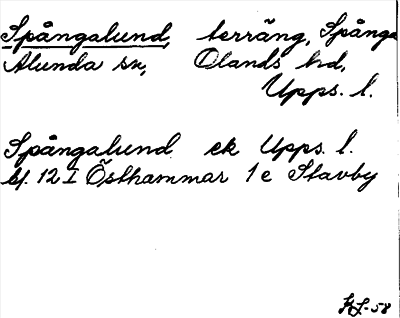 Spångalund, terräng, Spånga
Alunda sn, Olands hd,
Upps. l.
Spångalund ek Upps. l.
bl. 12 I Östhammar 1 e Stavby